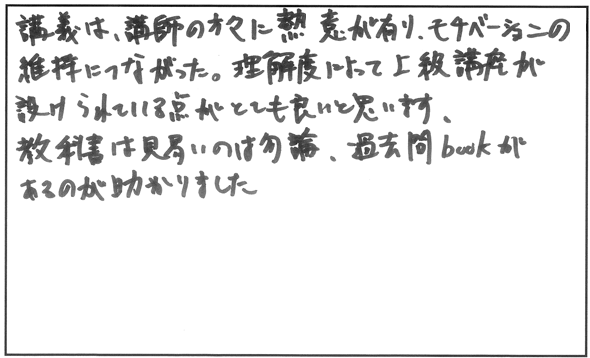 講義は、講師の方々に熱意が有り、モチベーションの
維持につながった。理解度によって上級講座が
設けられている点がとても良いと思います、
教科書は見易いのは勿論、過去問bookが
あるのが助かりました